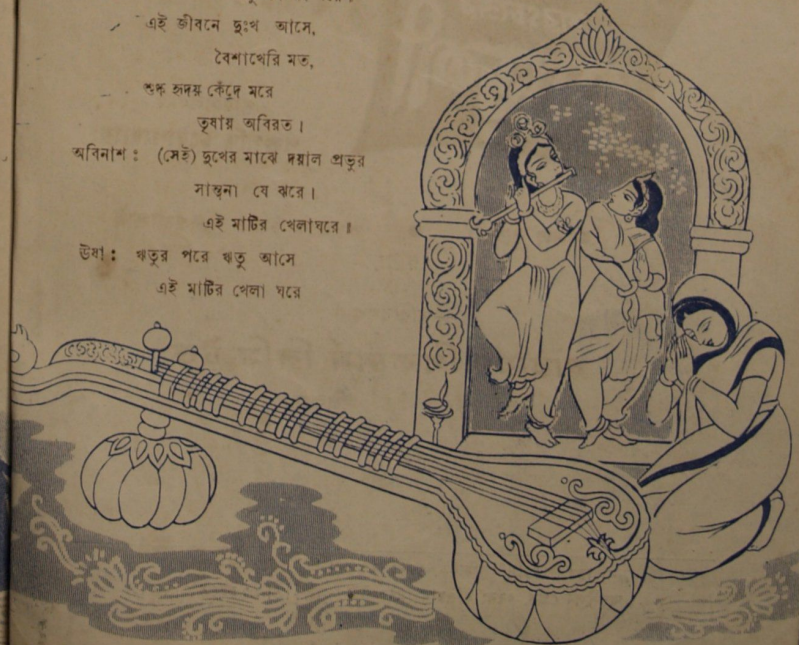 এই জীবনে দুঃখ আসে,
বৈশাখেরি মত,
শুষ্ক হৃদয় কেঁদে মরে
তৃষায় অবিরত।
অবিনাশ : (সেই) দুখের মাঝে দয়াল প্রভুর
সান্ত্বনা যে ঝরে।
এই মাটির খেলাঘরে॥
ঊষা : ঋতুর পরে ঋতু আসে
এই মাটির খেলা ঘরে